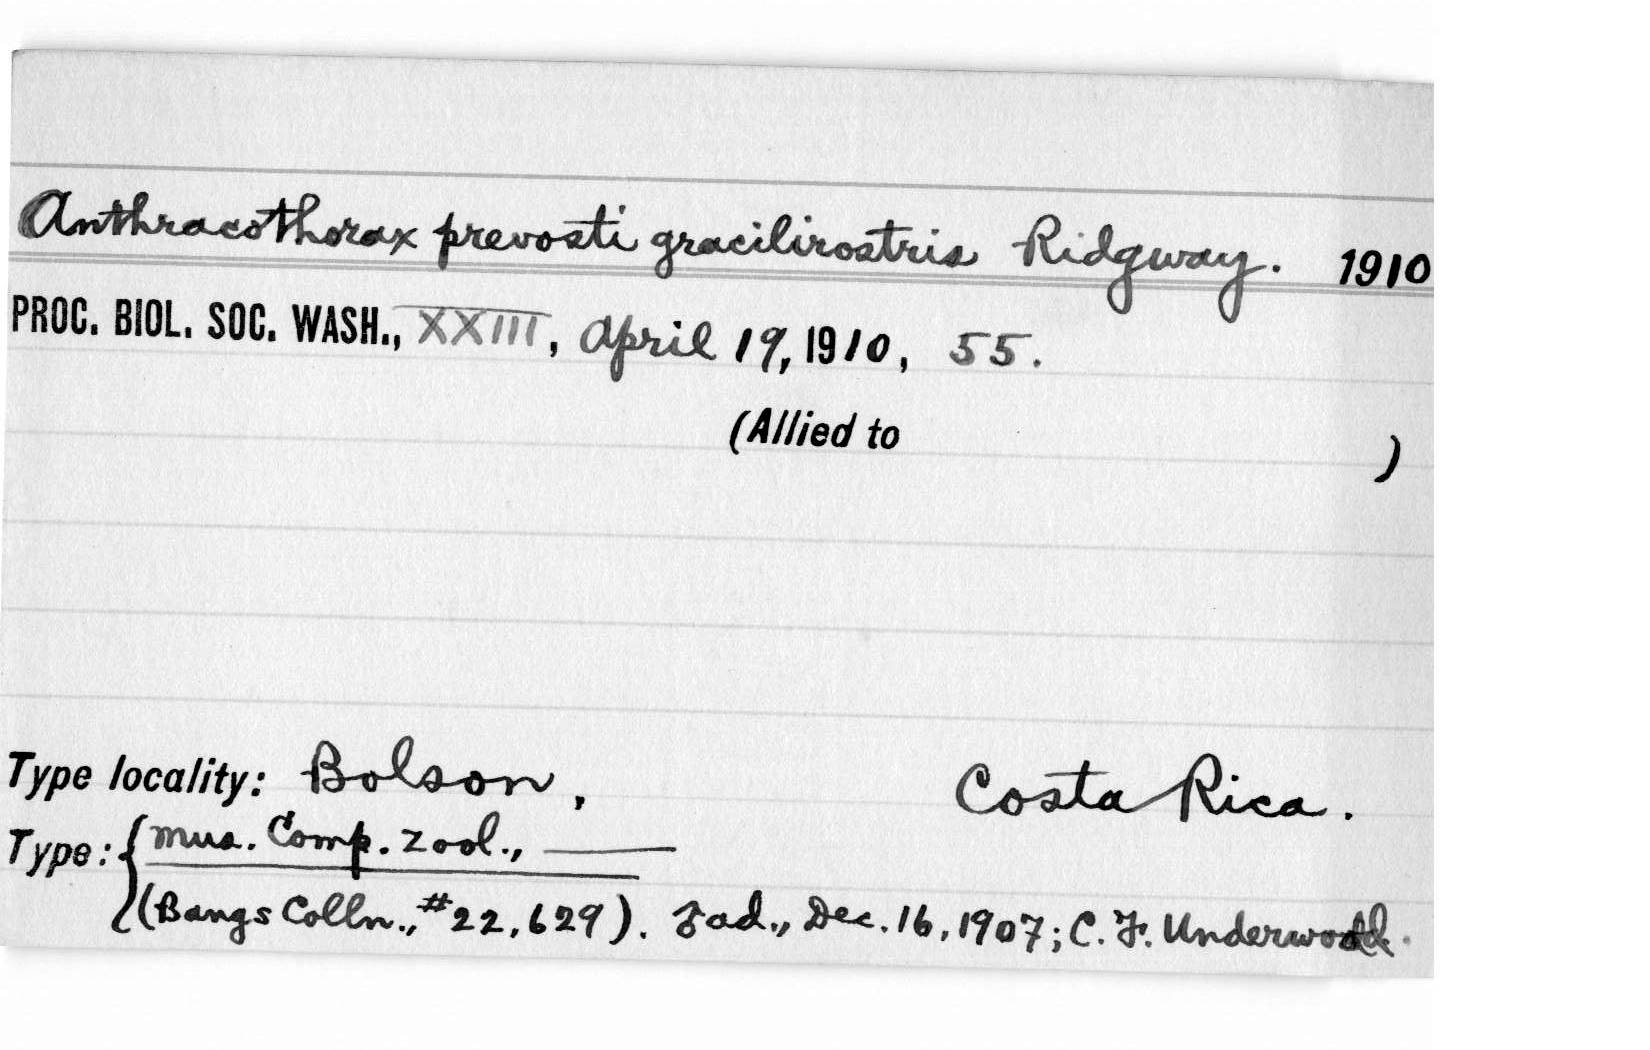 Anthracothorax prevosti gracilirostris Ridgway. 1910
PROC. BIOL. SOC. WASH., XXIII, April 19, 1910, 55.
(Allied to )
Type locality: Bolson, Costa Rica.
Type: { Mus. Comp. Zool., ———
(Bangs Colln., #22,629). Fad., Dec. 16, 1907; C. F. Underwood.